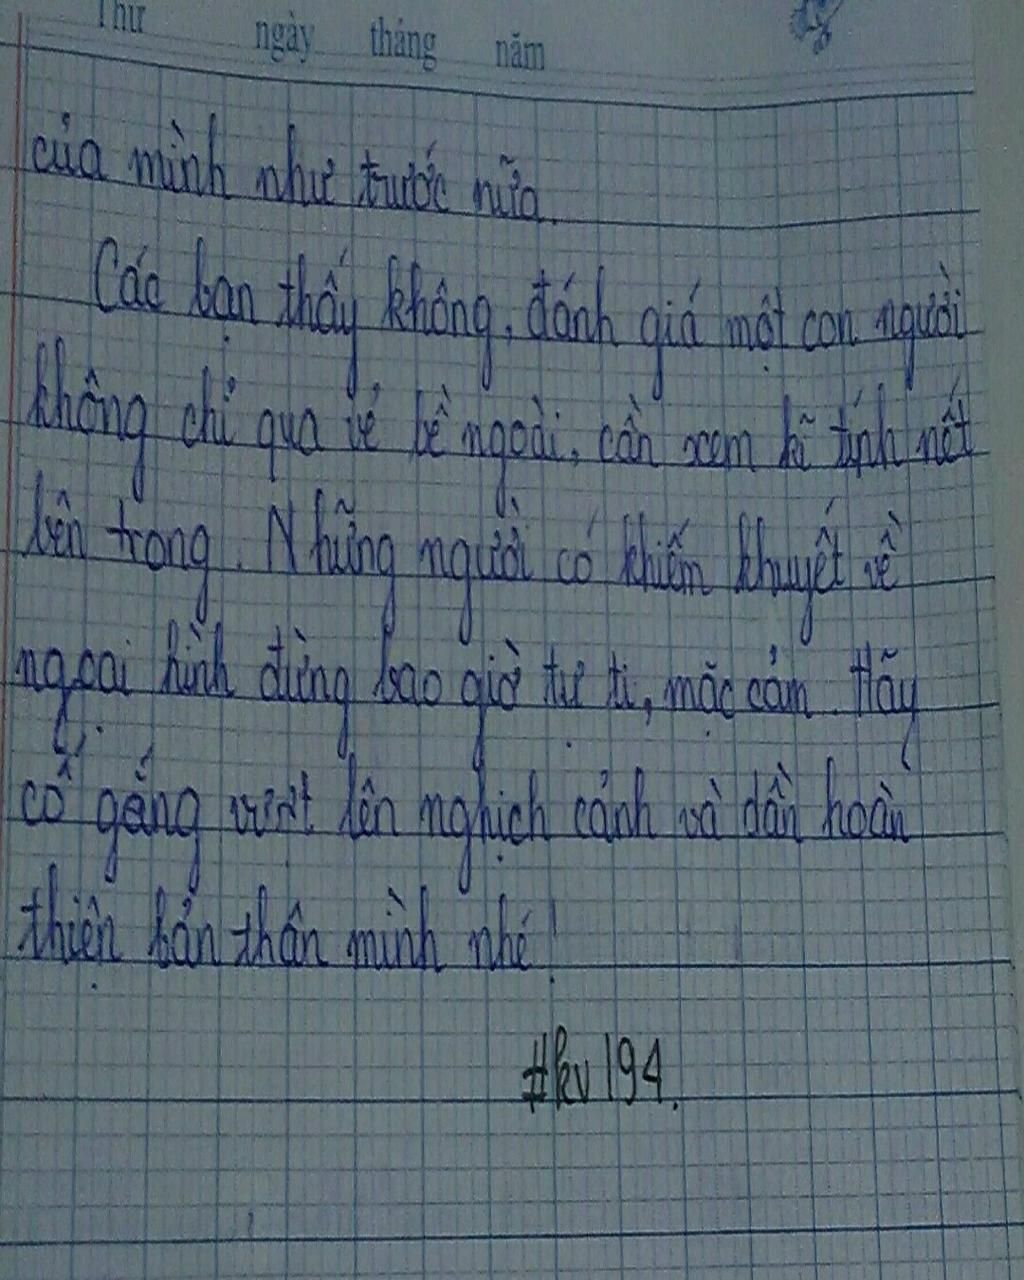 Thứ ngày tháng năm
của mình như trước nữa.
Các bạn thấy không, đánh giá một con người
không chỉ qua vẻ bề ngoài, cần xem kĩ tính nết
bên trong. Những người có khiếm khuyết về
ngoại hình đừng bao giờ tự ti, mặc cảm. Hãy
cố gắng vượt lên nghịch cảnh và dần hoàn
thiện bản thân mình nhé!
#kv194.